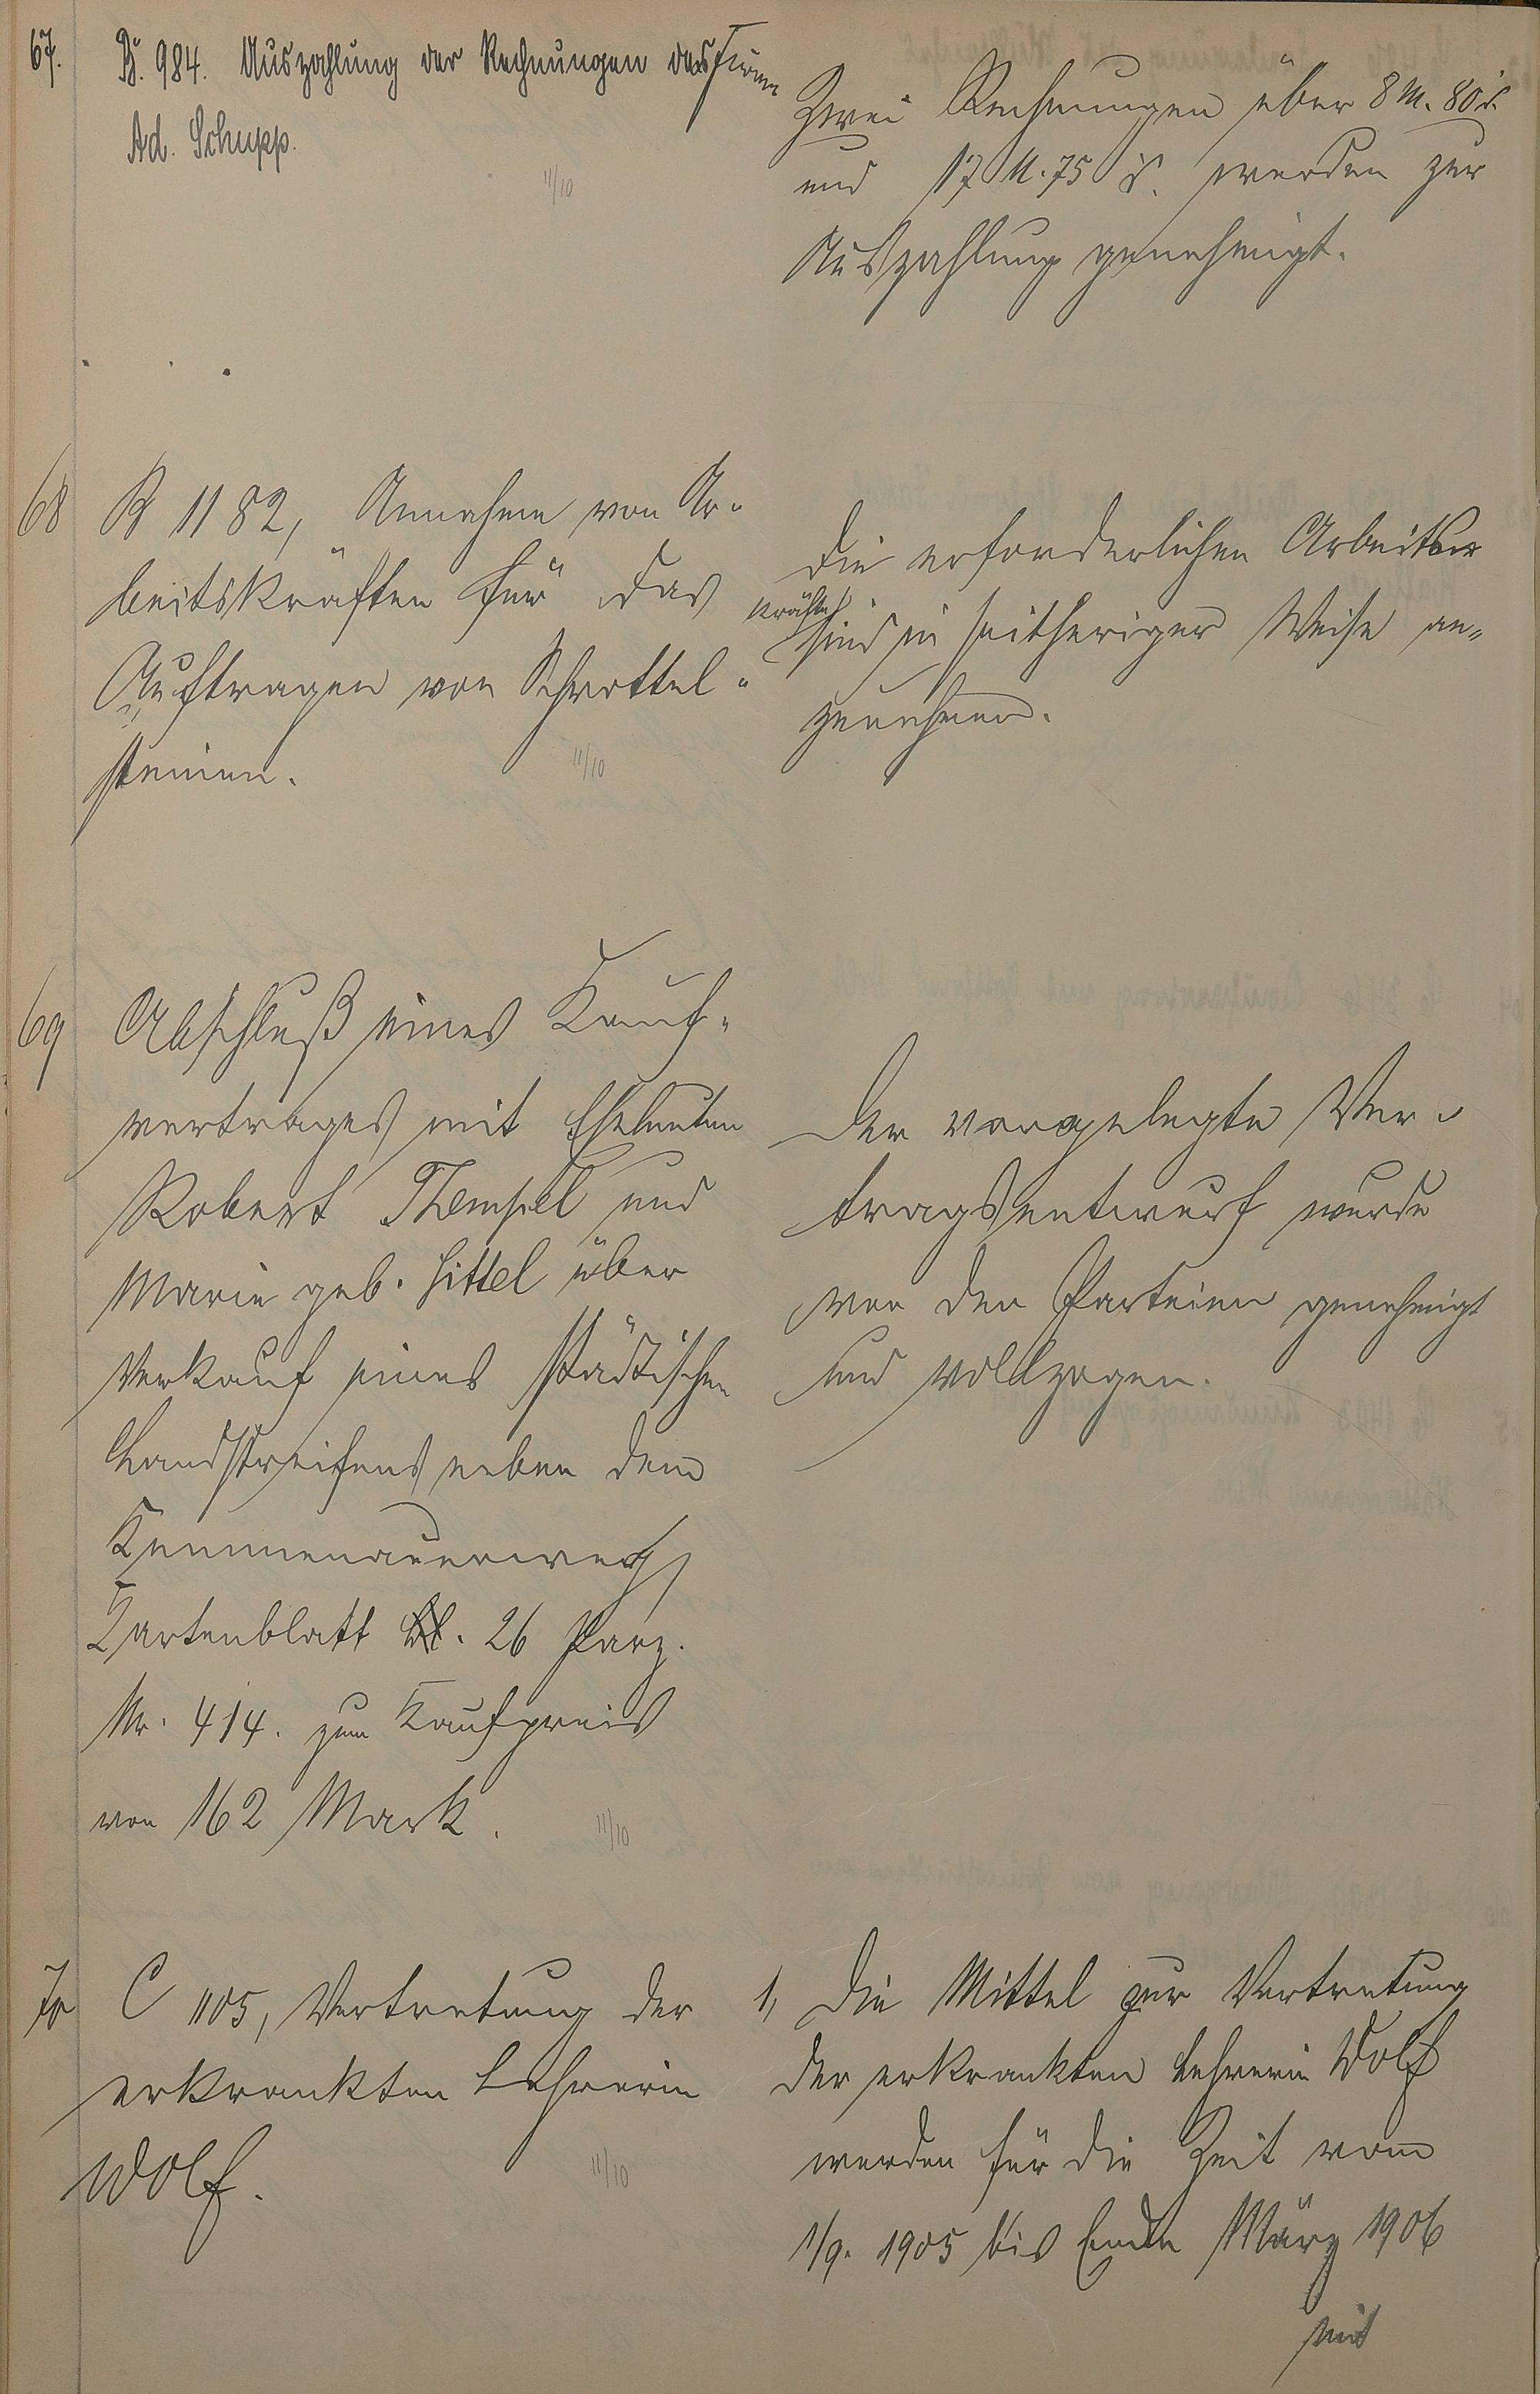 67.
B. 984. Auszahlung der Rechnungen der Firma
Ad. Schupp.
11/10
Zwei Rechnungen über 8 M. 80 ₰.
und 17 M. 75 ₰. werden zur
Auszahlung genehmigt.
68
B 1182, Annahme von Ar-
beitskräften für das
Auftragen von Schrottel-
steinen.
11/10
Die erforderlichen Arbeits-
kräfte
sind in seitheriger Weise an-
zunehmen.
69
Abschluß eines Kauf-
vertrages mit Eheleuten
Robert Thempel und
Marie geb. Hittel über
Verkauf eines städtischen
Landstreifens neben dem
Kemmenauerweg,
Kartenblatt Bl. 26 Parz.
Nr. 414. zum Kaufpreis
von 162 Mark.
11/10
Der vorgelegte Ver-
tragsentwurf wurde
von den Parteien genehmigt
und vollzogen.
70
C 1105, Vertretung der
erkrankten Lehrerin
Wolf.
11/10
1, Die Mittel zur Vertretung
der erkrankten Lehrerin Wolf
werden für die Zeit vom
1/9. 1905 bis Ende März 1906
mit